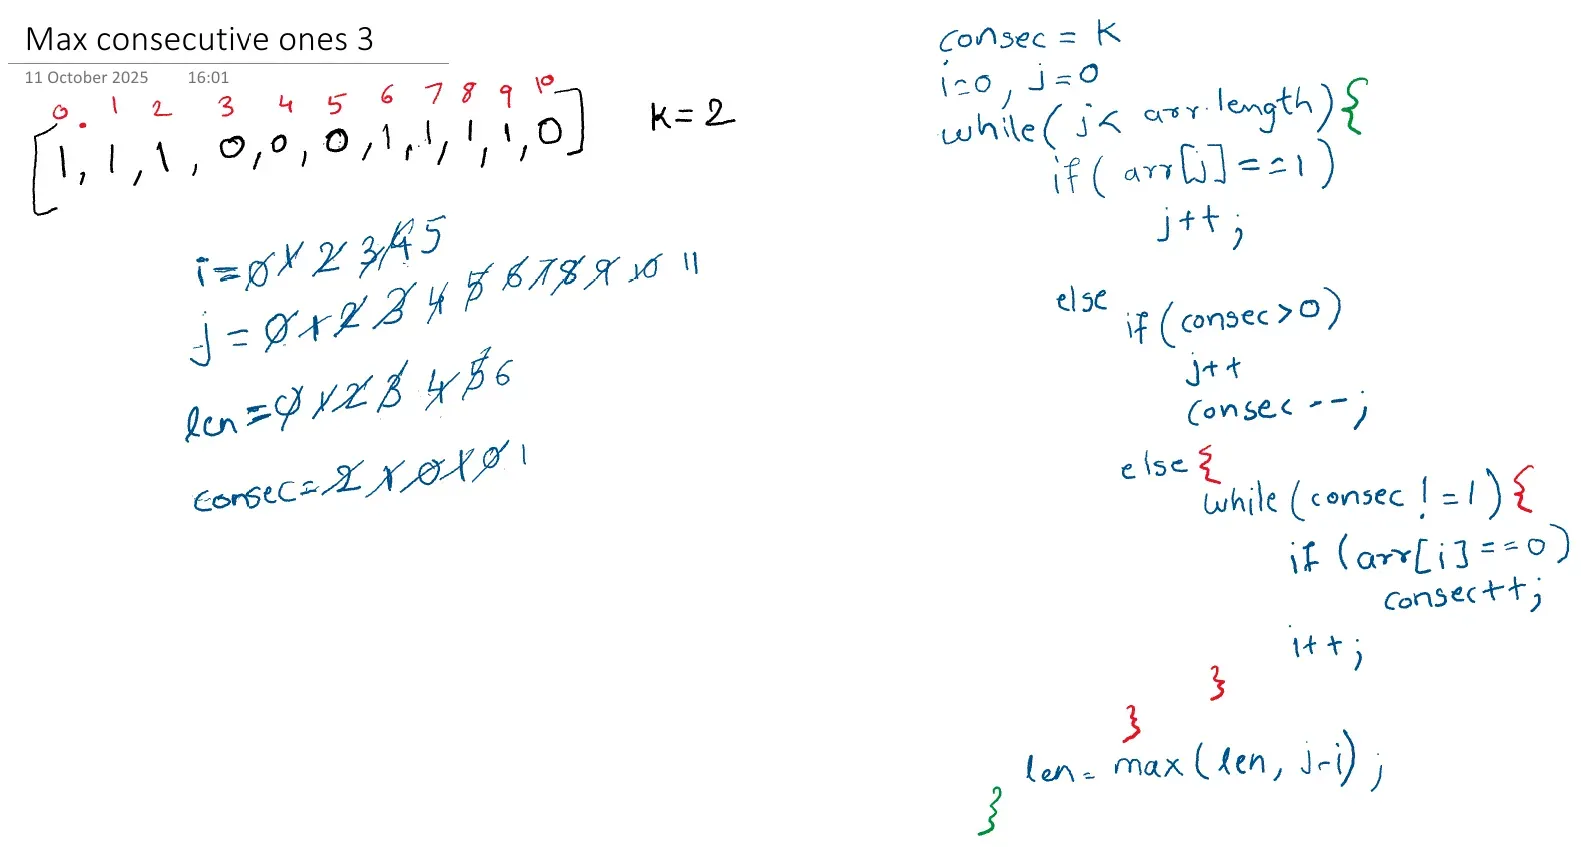 Max consecutive ones 3
11 October 2025 16:01
0 1 2 3 4 5 6 7 8 9 10
[1, 1, 1, 0, 0, 0, 1, 1, 1, 1, 0] k=2
i=0 1 2 3 4 5
j=0 1 2 3 4 5 6 7 8 9 10 11
len=0 1 2 3 4 5 6
consec=2 1 0 1 0 1
consec = K
i=0, j=0
while( j< arr.length){
if( arr[j]==1)
j++;
else
if(consec>0)
j++
consec--;
else{
while(consec!=1){
if(arr[i]==0)
consec++;
i++;
}
}
len=max(len, j-i);
}